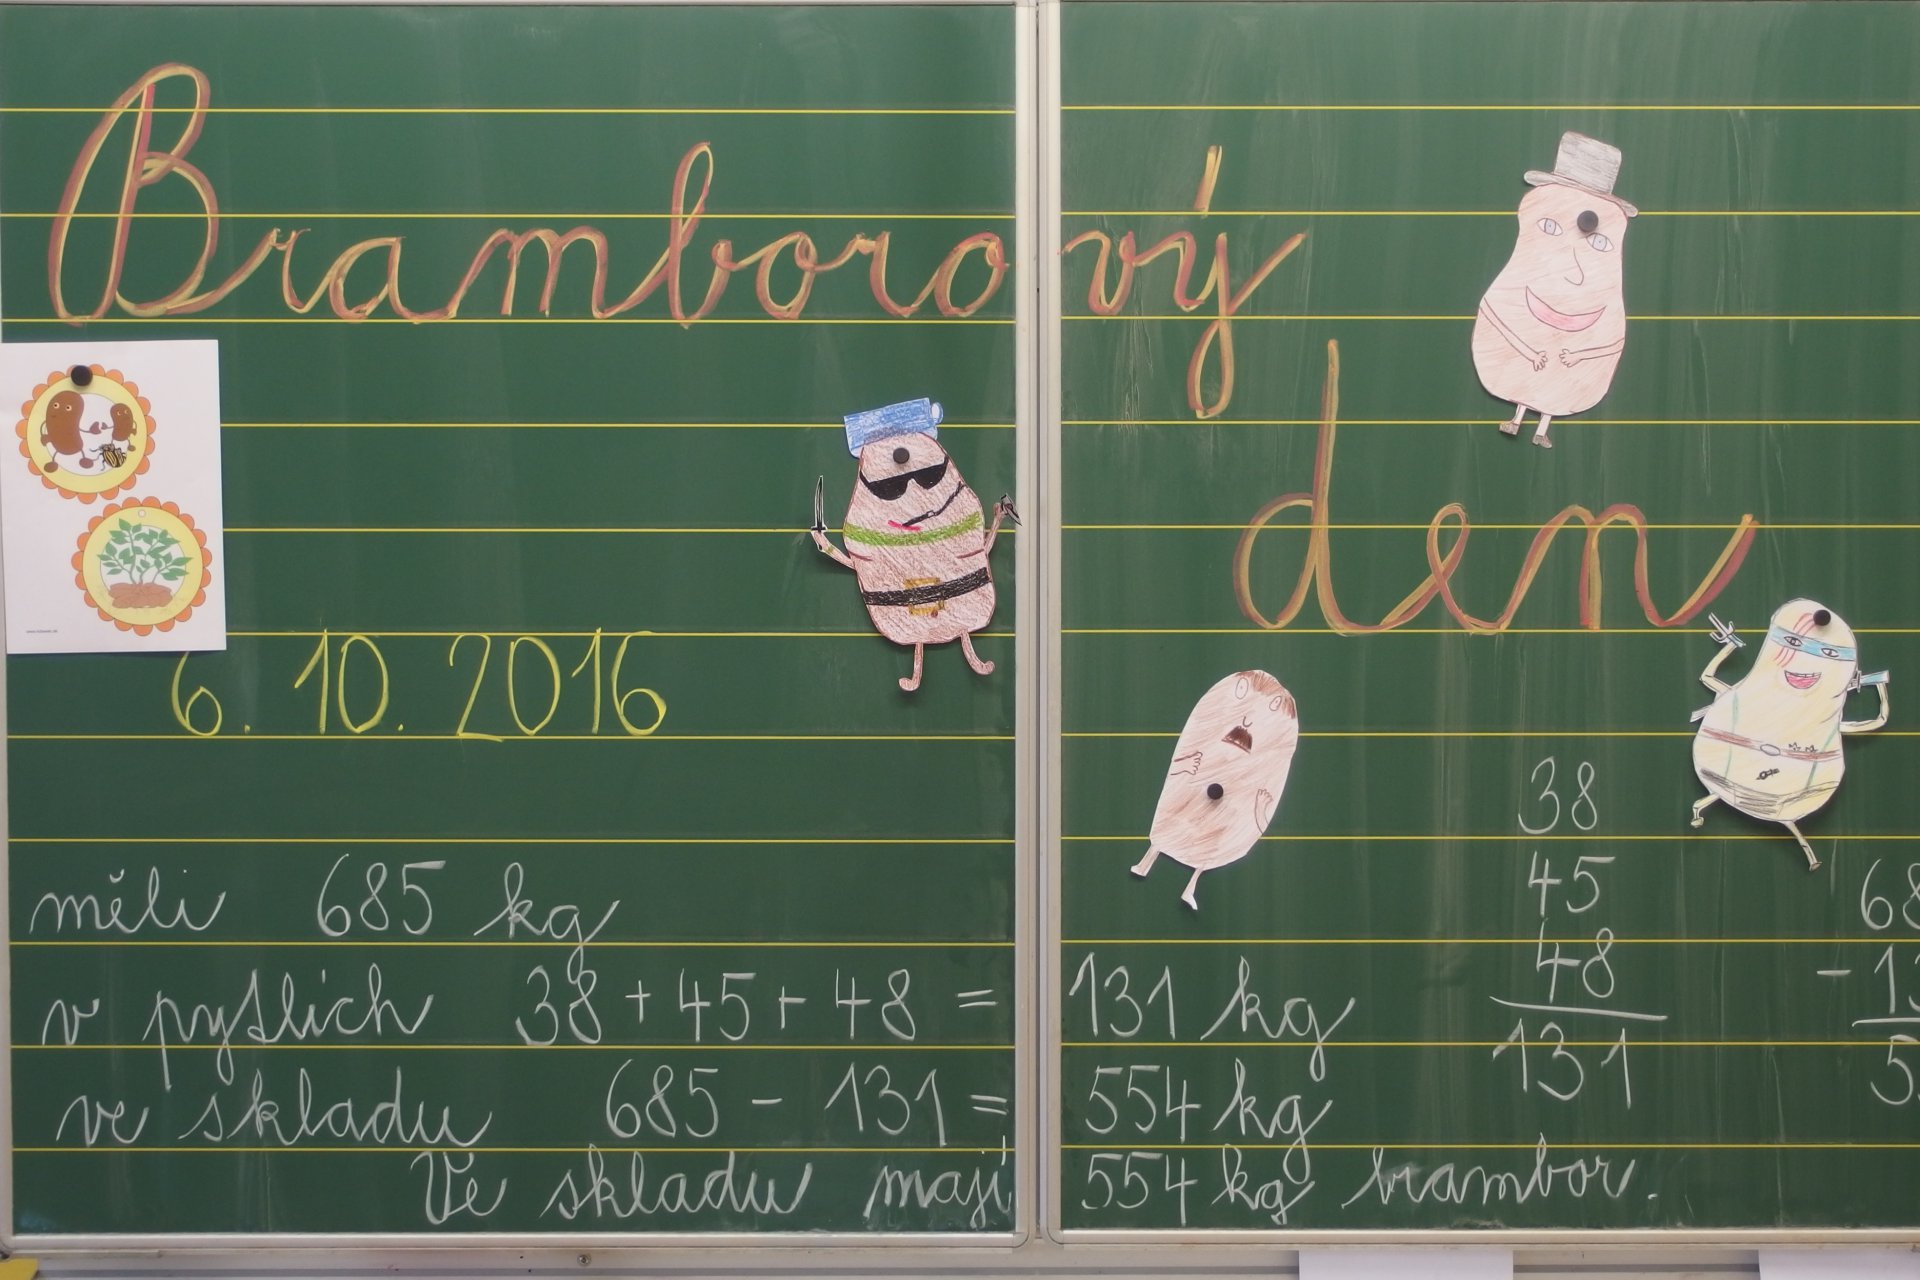 Bramborový
den
6. 10. 2016
měli 685 kg
v pytlích 38 + 45 + 48 = 131 kg
ve skladu 685 - 131 = 554 kg
Ve skladu mají 554 kg brambor.
38
45
48
131
68
- 13
5